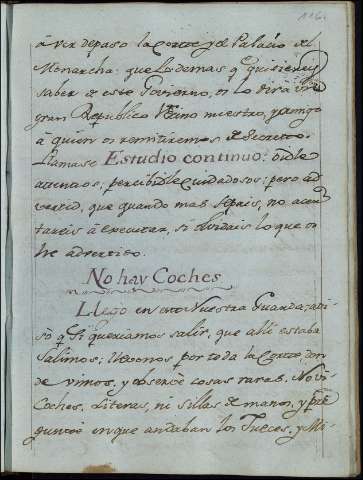 116
à ver depaso la Corte, y el Palacio del
Monarcha: que lo demas q.e quisiereis
saber de este Govierno, os lo dirà un
gran Republico Vecino nuestro, y amigo
à quien os remitiremos de Secreto.
Llamase Estudio continuo: oidle
atentos, percibidle cuidadosos; pero ad
vertid, que quando mas sepais, no acer
tareis à executar, si olvidais lo que os
he advertido.
No hay Coches
Llegò en esto Nuestra Guarda; avi
sò q.e si queriamos salir, que alli estaba
Salimos; llevonos por toda la Corte don
de vimos, y observè cosas raras. No vi
Coches, Literas, ni sillas de manos, y pre
guntè en que andaban los Jueces, y Mi-